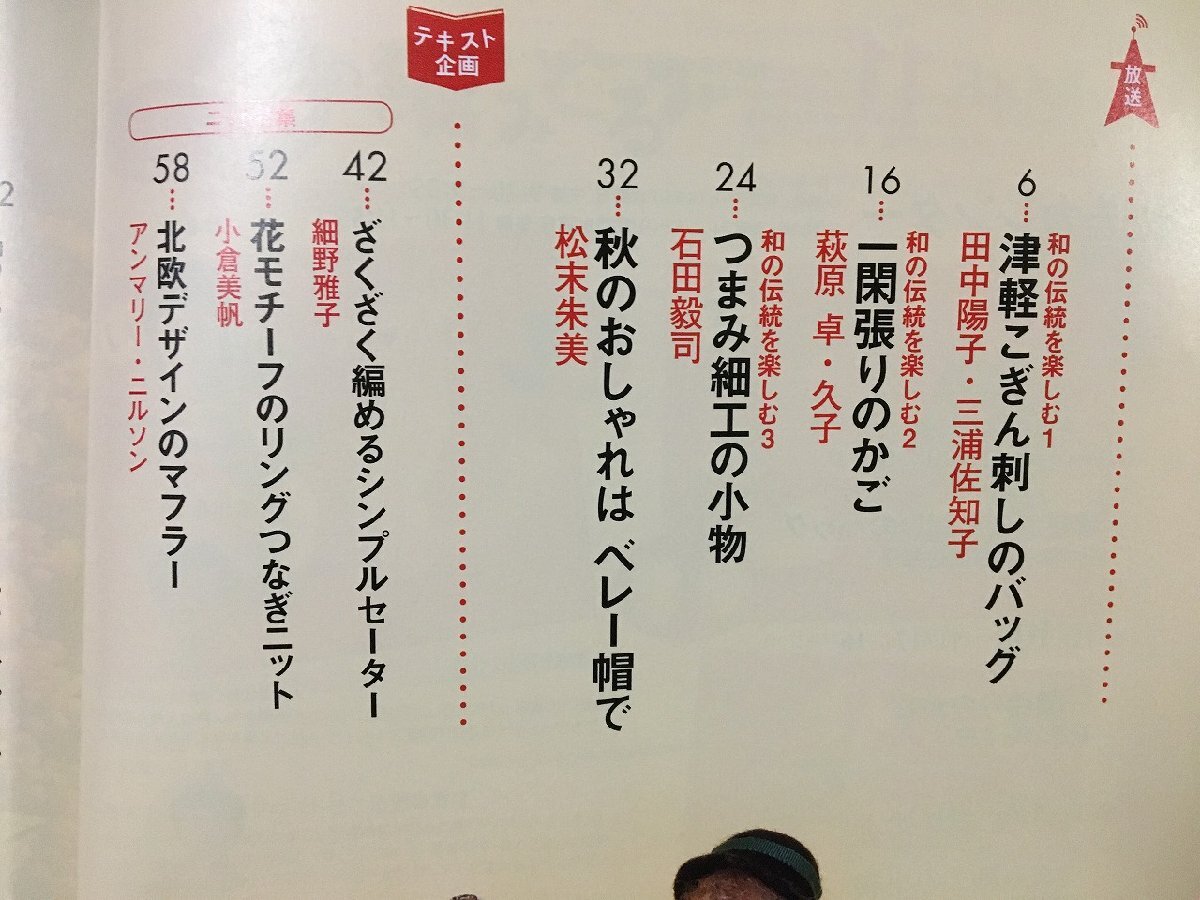 放送
6…
和の伝統を楽しむ1
津軽こぎん刺しのバッグ
田中陽子・三浦佐知子
16…
和の伝統を楽しむ2
一閑張りのかご
萩原 卓・久子
24…
和の伝統を楽しむ3
つまみ細工の小物
石田毅司
32…
秋のおしゃれは ベレー帽で
松末朱美
テキスト
企画
42…
ざくざく編めるシンプルセーター
細野雅子
52…
花モチーフのリングつなぎニット
小倉美帆
58…
北欧デザインのマフラー
アンマリー・ニルソン